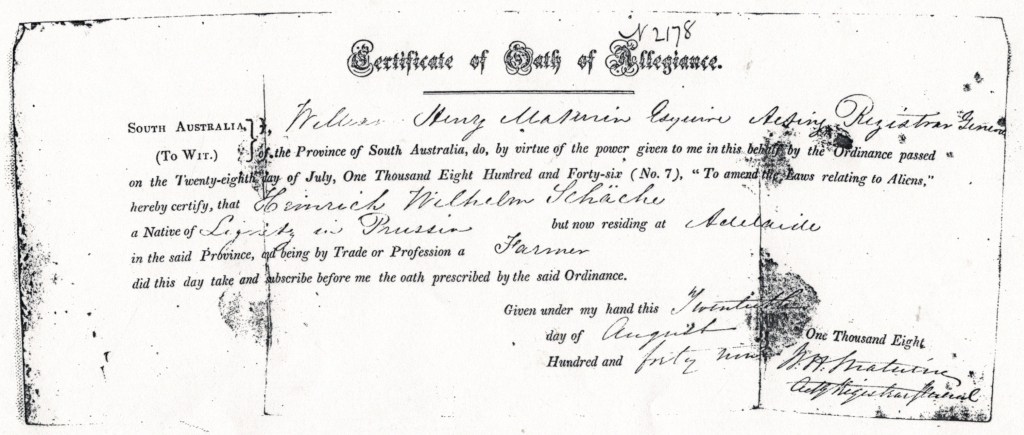 N 2178
Certificate of Oath of Allegiance.
SOUTH AUSTRALIA, } I, William Henry Maturin Esquire Acting Registrar General
(TO WIT.) } of the Province of South Australia, do, by virtue of the power given to me in this behalf by the Ordinance passed
on the Twenty-eighth day of July, One Thousand Eight Hundred and Forty-six (No. 7), "To amend the Laws relating to Aliens,"
hereby certify, that Heinrich Wilhelm Schäche
a Native of Lignetz in Prussia but now residing at Adelaide
in the said Province, and being by Trade or Profession a Farmer
did this day take and subscribe before me the oath prescribed by the said Ordinance.
Given under my hand this Twentieth
day of August One Thousand Eight
Hundred and forty nine
W. H. Maturin
Actg Registrar General